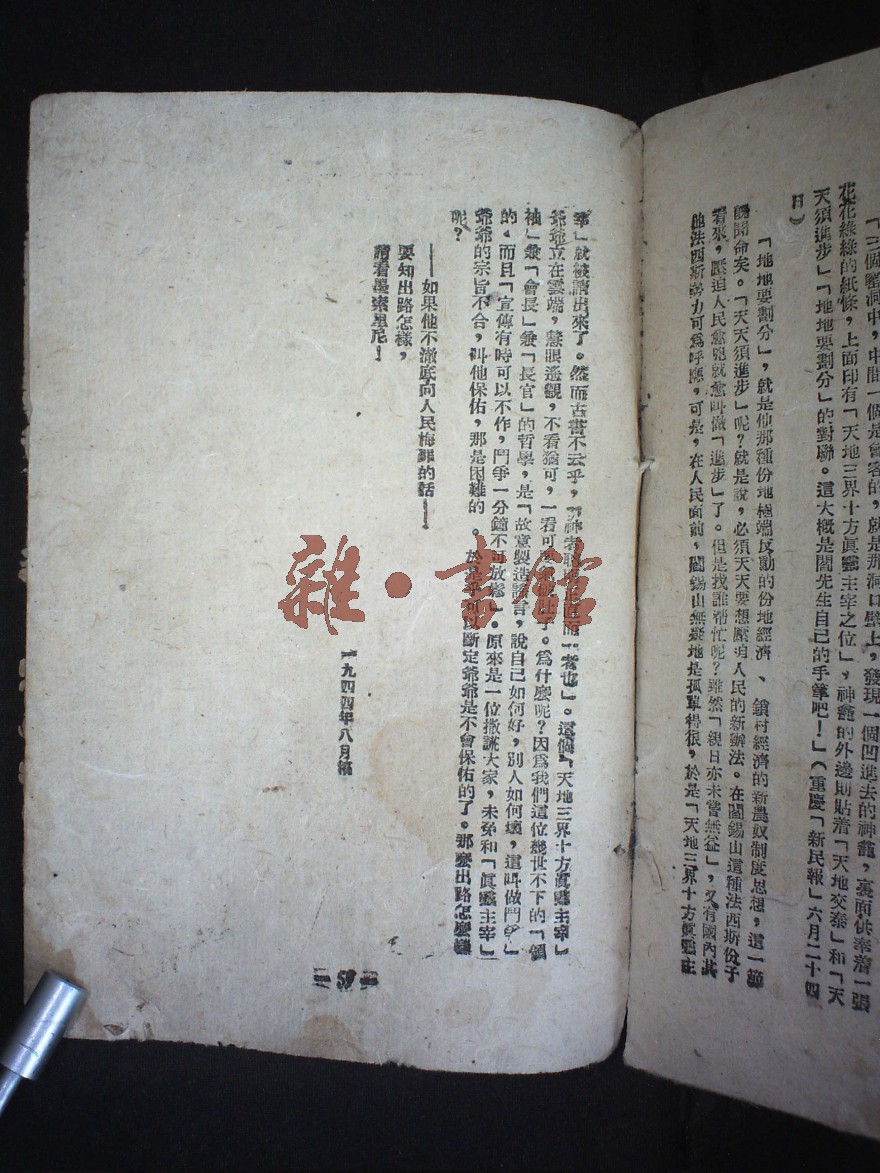 「三個窰洞中，中間一個是會客的，就是那洞口壁上，發現一個凹進去的神龕，裏面供奉着一張
花花綠綠的紙條，上面印有「天地三界十方眞靈主宰之位」，神龕的外邊則貼着「天地交泰」和「天
天須進步」「地地要劃分」的對聯。這大概是閻先生自己的手筆吧！」（重慶「新民報」六月二十四
日）
「地地要劃分」，就是他那種份地極端反動的份地經濟、鎖村經濟的新農奴制度思想，這一節
聞命矣。「天天須進步」呢？就是說，必須天天要想壓迫人民的新辦法。在閻錫山這種法西斯份子
看來，壓迫人民愈兇就愈叫做「進步」了。但是找誰幫忙呢？雖然「親日亦未嘗無益」，又有國內其
他法西斯勢力可爲呼應，可是，在人民面前，閻錫山無疑地是孤單得很，於是「天地三界十方眞靈主
宰」就被請出來了。然而古書不云乎，「神者聰 而一者也」。這個「天地三界十方眞靈主宰」
爺爺立在雲端，慧眼遙觀，不看猶可，一看可 。爲什麼呢？因爲我們這位幾世不下的「領
袖」兼「會長」兼「長官」的哲學，是「故意製造謠言，說自己如何好，別人如何壞，這叫做鬥爭」
的。而且「宣傳有時可以不作，鬥爭一分鐘不可放鬆」。原來是一位撒謊大家，未免和「眞靈主宰」
爺爺的宗旨不合，叫他保佑，那是困難的。於是乎可以斷定爺爺是不會保佑的了。那麼出路怎麼樣
呢？
——如果他不澈底向人民悔罪的話——
要知出路怎樣，
請看墨索里尼！
一九四四年八月稿
59
雜·書館